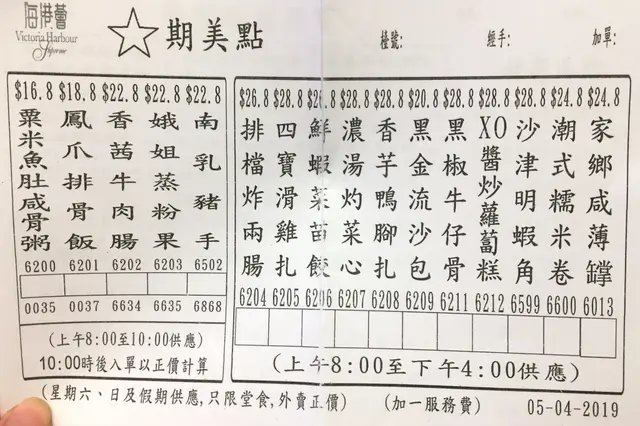 海港薈
Victoria Harbour
Supreme
期美點
檯號:
經手:
加單:
$16.8 $18.8 $22.8 $22.8 $22.8
粟米魚肚咸骨粥
鳳爪排骨飯
香茜牛肉腸
娥姐蒸粉果
南乳豬手
6200 6201 6202 6203 6502
0035 0037 6634 6635 6868
(上午8:00至10:00供應)
10:00時後入單以正價計算
$26.8 $28.8 $28.8 $20.8 $28.8 $20.8 $28.8 $28.8 $24.8 $24.8
排檔炸兩腸
四寶滑雞扎
鮮蝦菜苗餃
濃湯灼菜心
香芋鴨腳扎
黑金流沙包
黑椒牛仔骨
XO醬炒蘿蔔糕
沙津明蝦角
潮式糯米卷
家鄉咸薄罉
6204 6205 6206 6207 6208 6209 6211 6212 6599 6600 6013
(上午8:00至下午4:00供應)
(星期六、日及假期供應,只限堂食,外賣正價)
(加一服務費)
05-04-2019